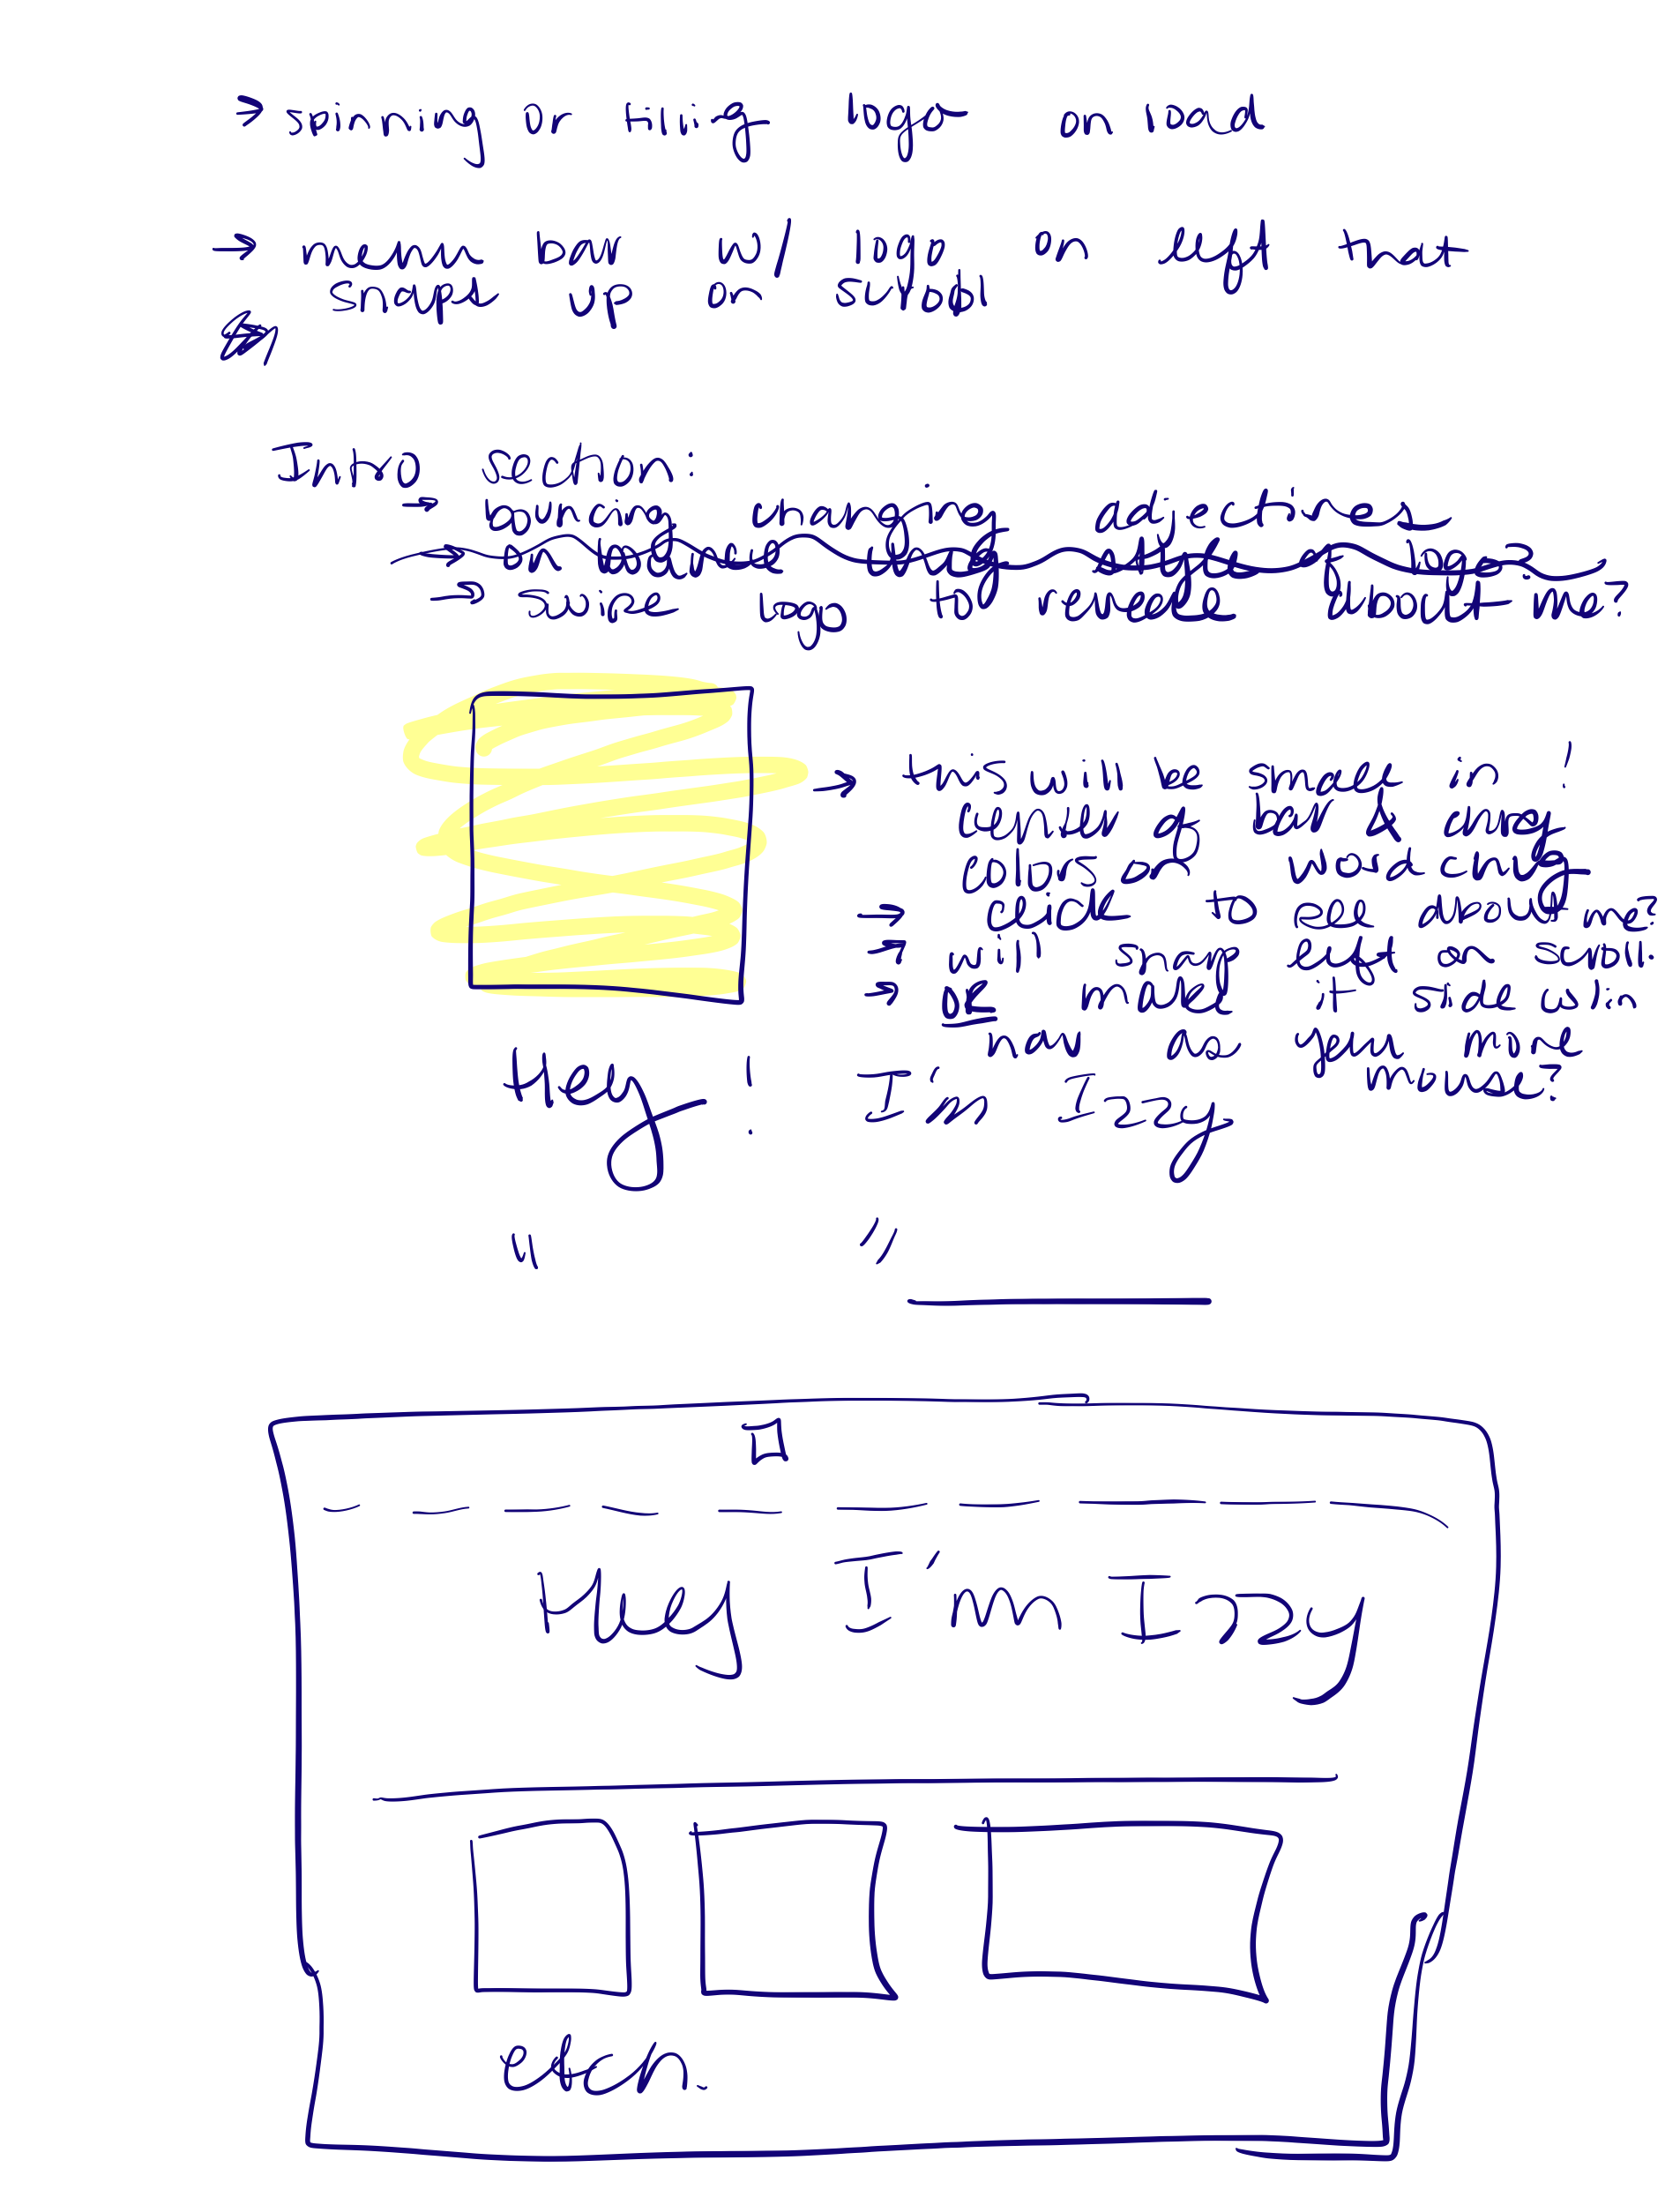 → spinning or tilting logo on load
→ menu bar w/ logo on left that
snaps up on scroll
Intro section:
→ bouncing changing adjectives
→ on bounce chng style of logo?
→ swipe logo to reveal about me?
→ this will be small in !
center of bar & chng
colors on word chng
→ click to see about me?
→ will snap left on scroll.
→ OR make it slide w/in
nav as you move
mouse?
Hey! I'm Izzy
" "
Hey I'm Izzy
etch.